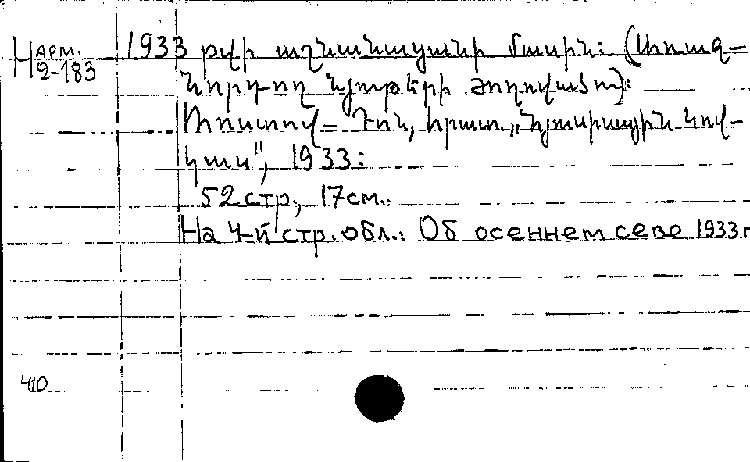 Н арм. 2-183
1933 թվի աշնանացանի մասին: (Առաջ-
նորդող նյութերի ժողովածու):
Ռոստով-Դոն, հրատ. „Հյուսիսային Կով-
կաս", 1933:
52 стр, 17 см.
На 4-й стр. обл.: Об осеннем севе 1933 г
410